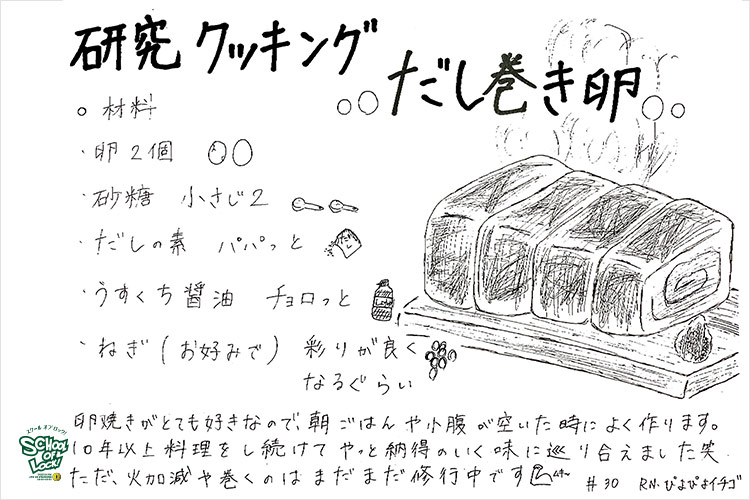 研究クッキング
だし巻き卵
○ 材料
・卵2個
・砂糖 小さじ2
・だしの素 パパっと
・うすくち醤油 チョロっと
・ねぎ(お好みで) 彩りが良く
なるぐらい
卵焼きがとても好きなので、朝ごはんや小腹が空いた時によく作ります。
10年以上料理をし続けてやっと納得のいく味に巡り合えました笑
ただ、火加減や巻くのはまだまだ修行中です
#30 RN.ぴよぴよイチゴ
スクール オブ ロック!
SCHOOL OF LOCK!